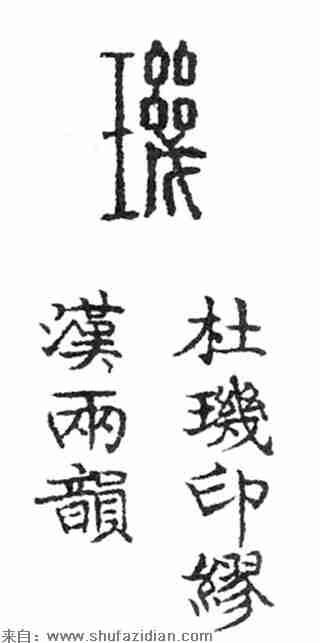 璣
杜璣印繆
漢兩韻
来自：www.shufazidian.com